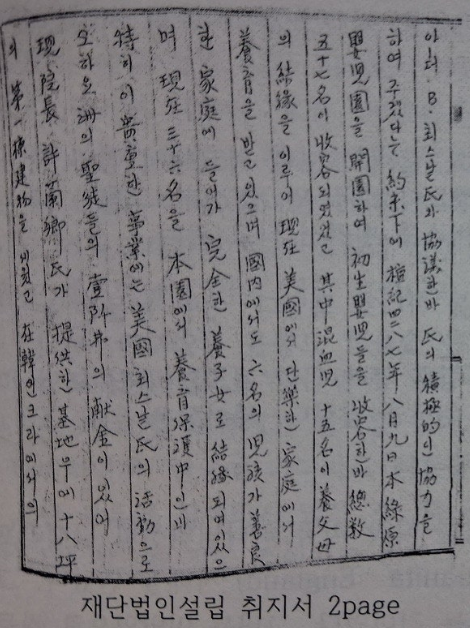 아더 B. 최스날氏와 協議한바 氏의 積極的인 協力을
하여 주겠다는 約束下에 檀紀四二八七年 八月九日 本 綠原
嬰兒園을 開園하여 初生嬰児들을 收容한바 總数
五十七名이 收容되었었고 其中 混血児 十五名이 養父母
의 結緣을 이루어 現在 美國에서 단樂한 家庭에서
養育을 받고 있으며 國內에서도 六名의 児孩가 善良
한 家庭에 들어가 完全한 養子女로 結緣되여 있으
며 現在 三十六名을 本園에서 養育保護中인바
特히 이 貴重한 事業에는 美國 최스날氏의 活動으로
오하오 洲의 聖徒들의 壹阡弗의 献金이 있어
現 院長 許蘭鄕 氏가 提供한 基地우에 十八坪
의 第一棟建物을 세웠고 在韓인 크라에서의
재단법인설립 취지서 2page